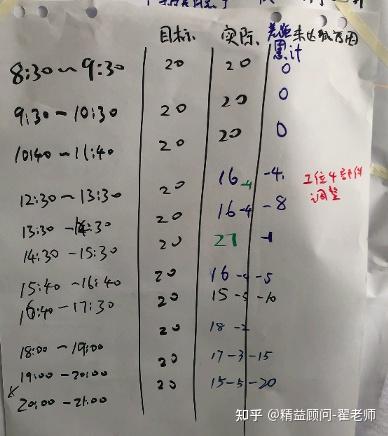 目标 实际 差距累计 未达成原因
8:30~9:30 20 20 0
9:30~10:30 20 20 0
10:40~11:40 20 20 0
12:30~13:30 20 16 -4 -4 工位4
调整
13:30-14:30 20 16-4 -8
14:30-15:30 20 27
15:40-16:40 20 16-4-5
16:40-17:30 20 15-5-10
18:00-19:00 20 18-2
19:00-20:00 20 17-3-15
20:00-21:00 20 15-5-20
知乎 @精益顾问-翟老师